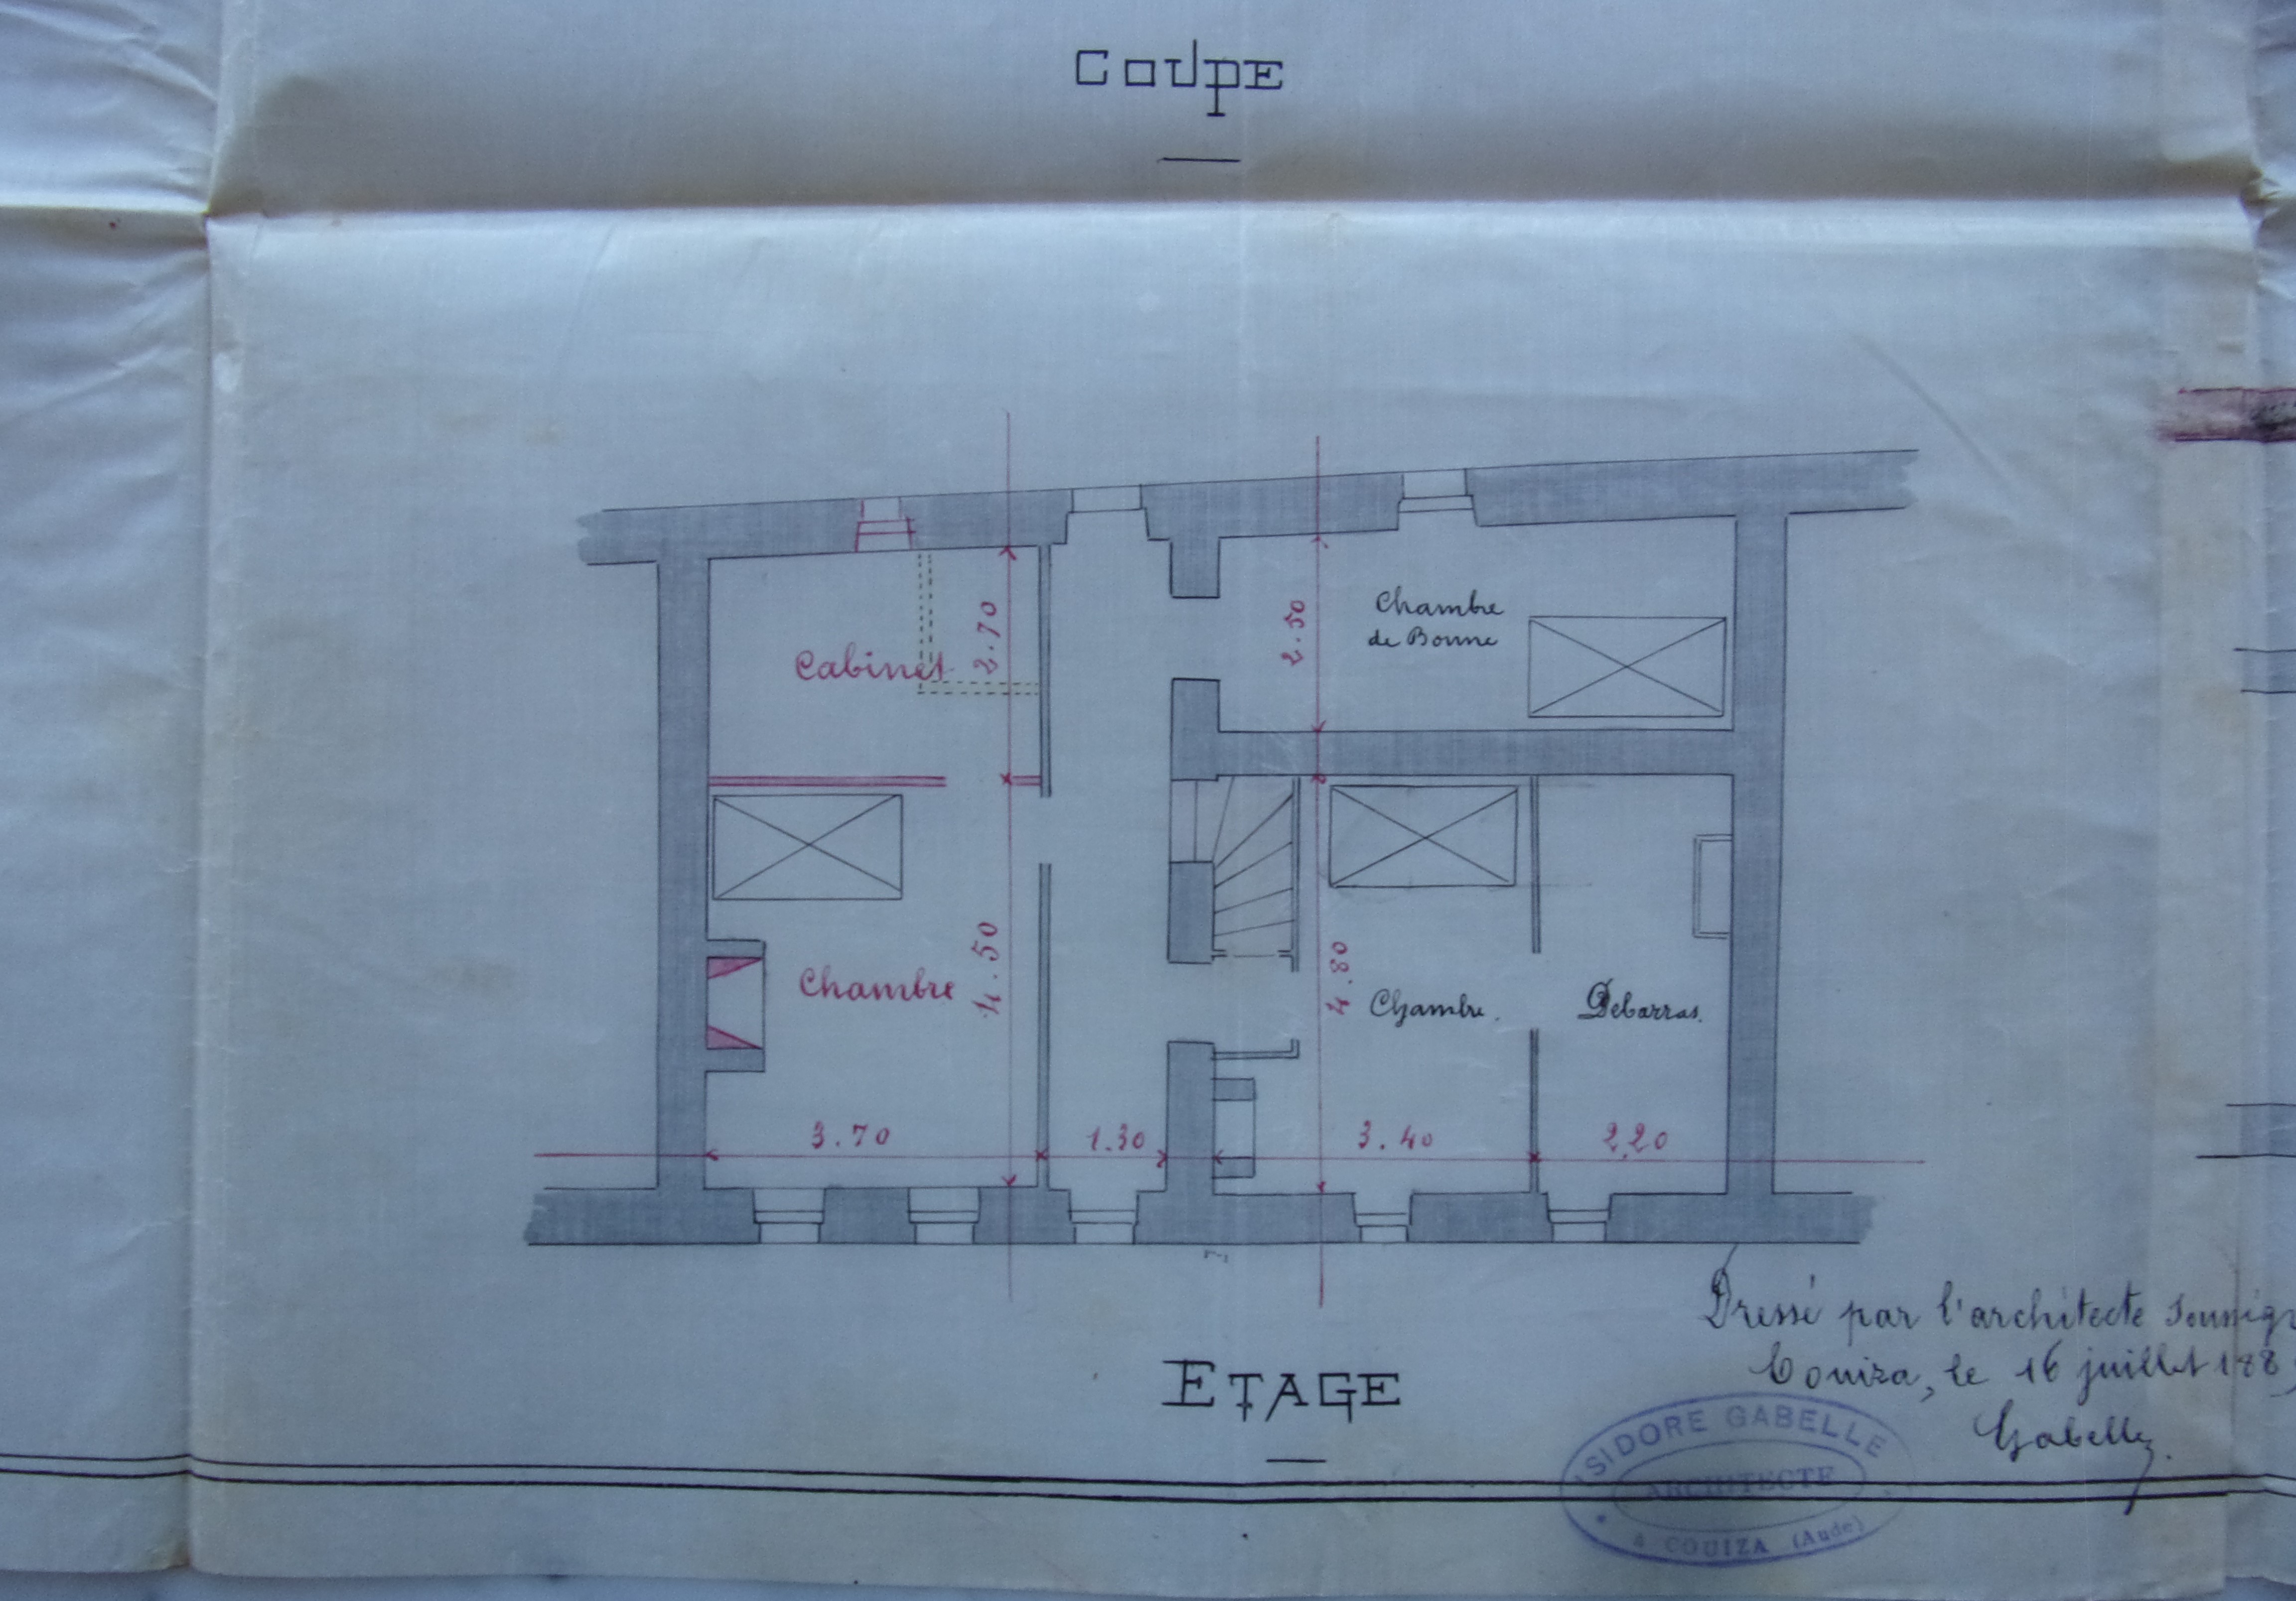 COUPE
Cabinet
2.70
2.50
Chambre
de Bonne
Chambre
4.50
4.80
Chambre.
Débarras.
3.70
1.30
3.40
2.20
ETAGE
Dressé par l'architecte
Couiza, le 16 juillet 188
Gabelle
ISIDORE GABELLE
ARCHITECTE
A COUIZA (Aude)